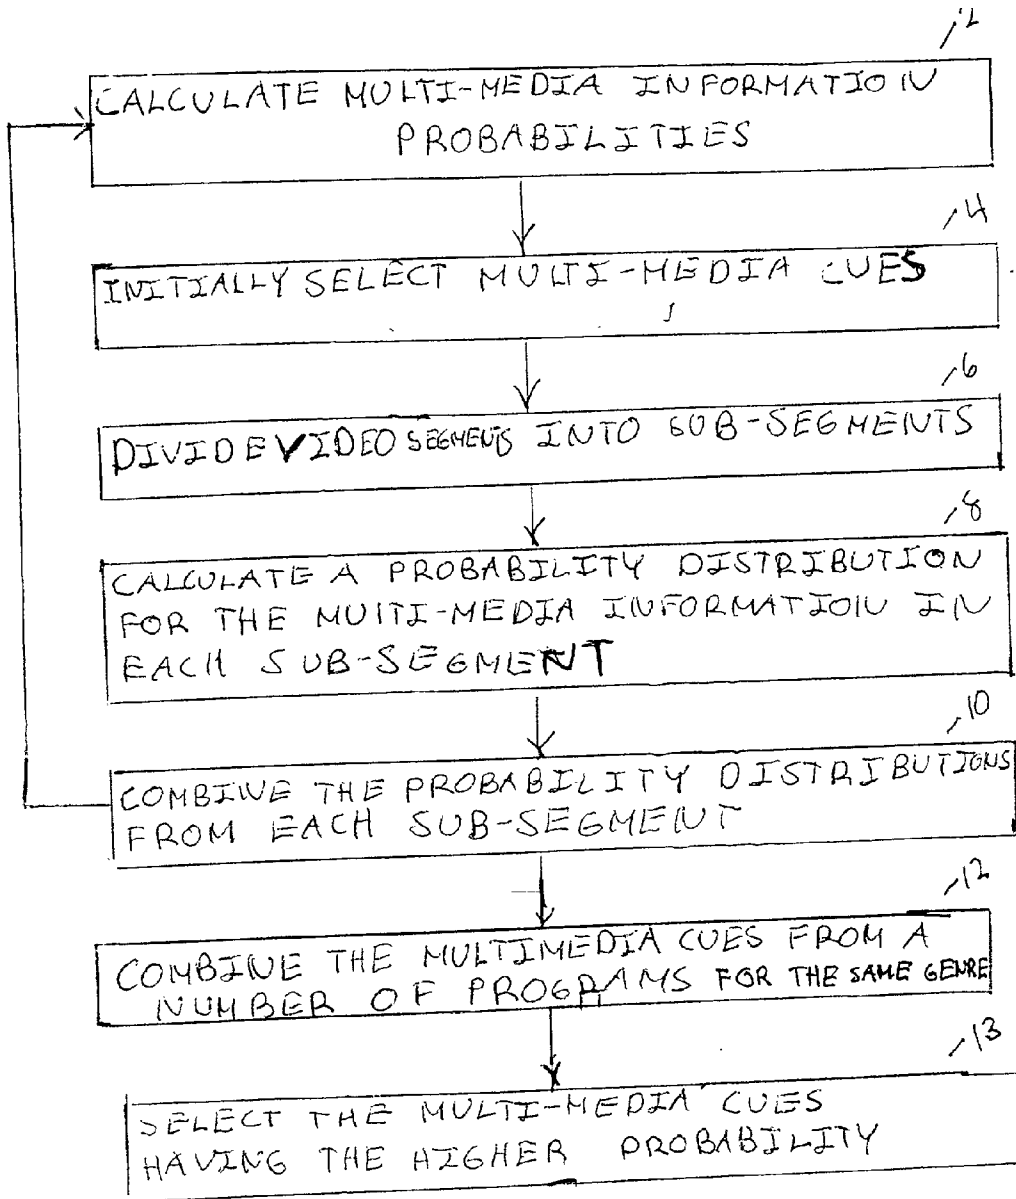 2
CALCULATE MULTI-MEDIA INFORMATION
PROBABILITIES
4
INITIALLY SELECT MULTI-MEDIA CUES
6
DIVIDE VIDEO SEGMENTS INTO SUB-SEGMENTS
8
CALCULATE A PROBABILITY DISTRIBUTION
FOR THE MULTI-MEDIA INFORMATION IN
EACH SUB-SEGMENT
10
COMBINE THE PROBABILITY DISTRIBUTIONS
FROM EACH SUB-SEGMENT
12
COMBINE THE MULTIMEDIA CUES FROM A
NUMBER OF PROGRAMS FOR THE SAME GENRE
13
SELECT THE MULTI-MEDIA CUES
HAVING THE HIGHER PROBABILITY